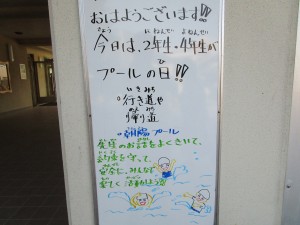 おはようございます!!
きょう にねんせい よねんせい
今日は、2年生・4年生が
ひ
プールの日!!
い みち
◦行き道や
かえ みち
帰り道
◦朝陽プール
先生のお話をよくきいて、
約束を守って、
安全に、みんなで
楽しく 活動しよう!!